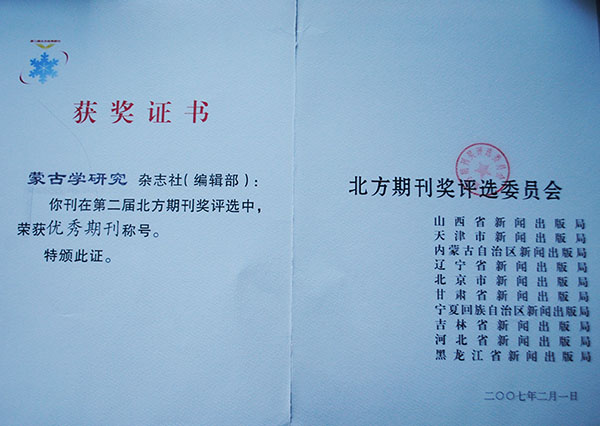 获奖证书
蒙古学研究 杂志社(编辑部):
你刊在第二届北方期刊奖评选中,
荣获优秀期刊称号。
特颁此证。
北方期刊奖评选委员会
山西省新闻出版局
天津市新闻出版局
内蒙古自治区新闻出版局
辽宁省新闻出版局
北京市新闻出版局
甘肃省新闻出版局
宁夏回族自治区新闻出版局
吉林省新闻出版局
河北省新闻出版局
黑龙江省新闻出版局
二〇〇七年二月一日